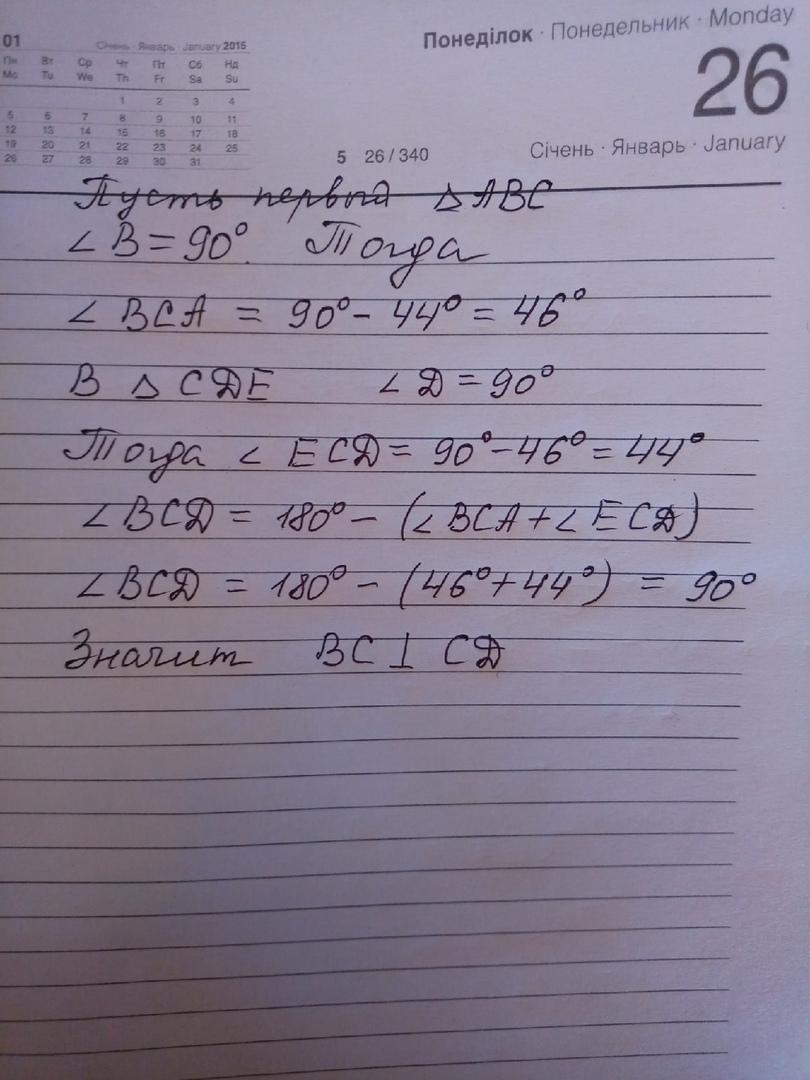 01 Січень · Январь · January 2015
Пн Вт Ср Чт Пт Сб Нд
Mo Tu We Th Fr Sa Su
1 2 3 4
5 6 7 8 9 10 11
12 13 14 15 16 17 18
19 20 21 22 23 24 25
26 27 28 29 30 31
Понеділок · Понедельник · Monday
26
5 26 / 340
Січень · Январь · January
Пусть первый △ ABC
∠ B = 90°. Тогда
∠ BCA = 90° - 44° = 46°
В △ CDE ∠ D = 90°
Тогда ∠ ECD = 90° - 46° = 44°
∠ BCD = 180° - (∠ BCA + ∠ ECD)
∠ BCD = 180° - (46° + 44°) = 90°
Значит BC ⊥ CD